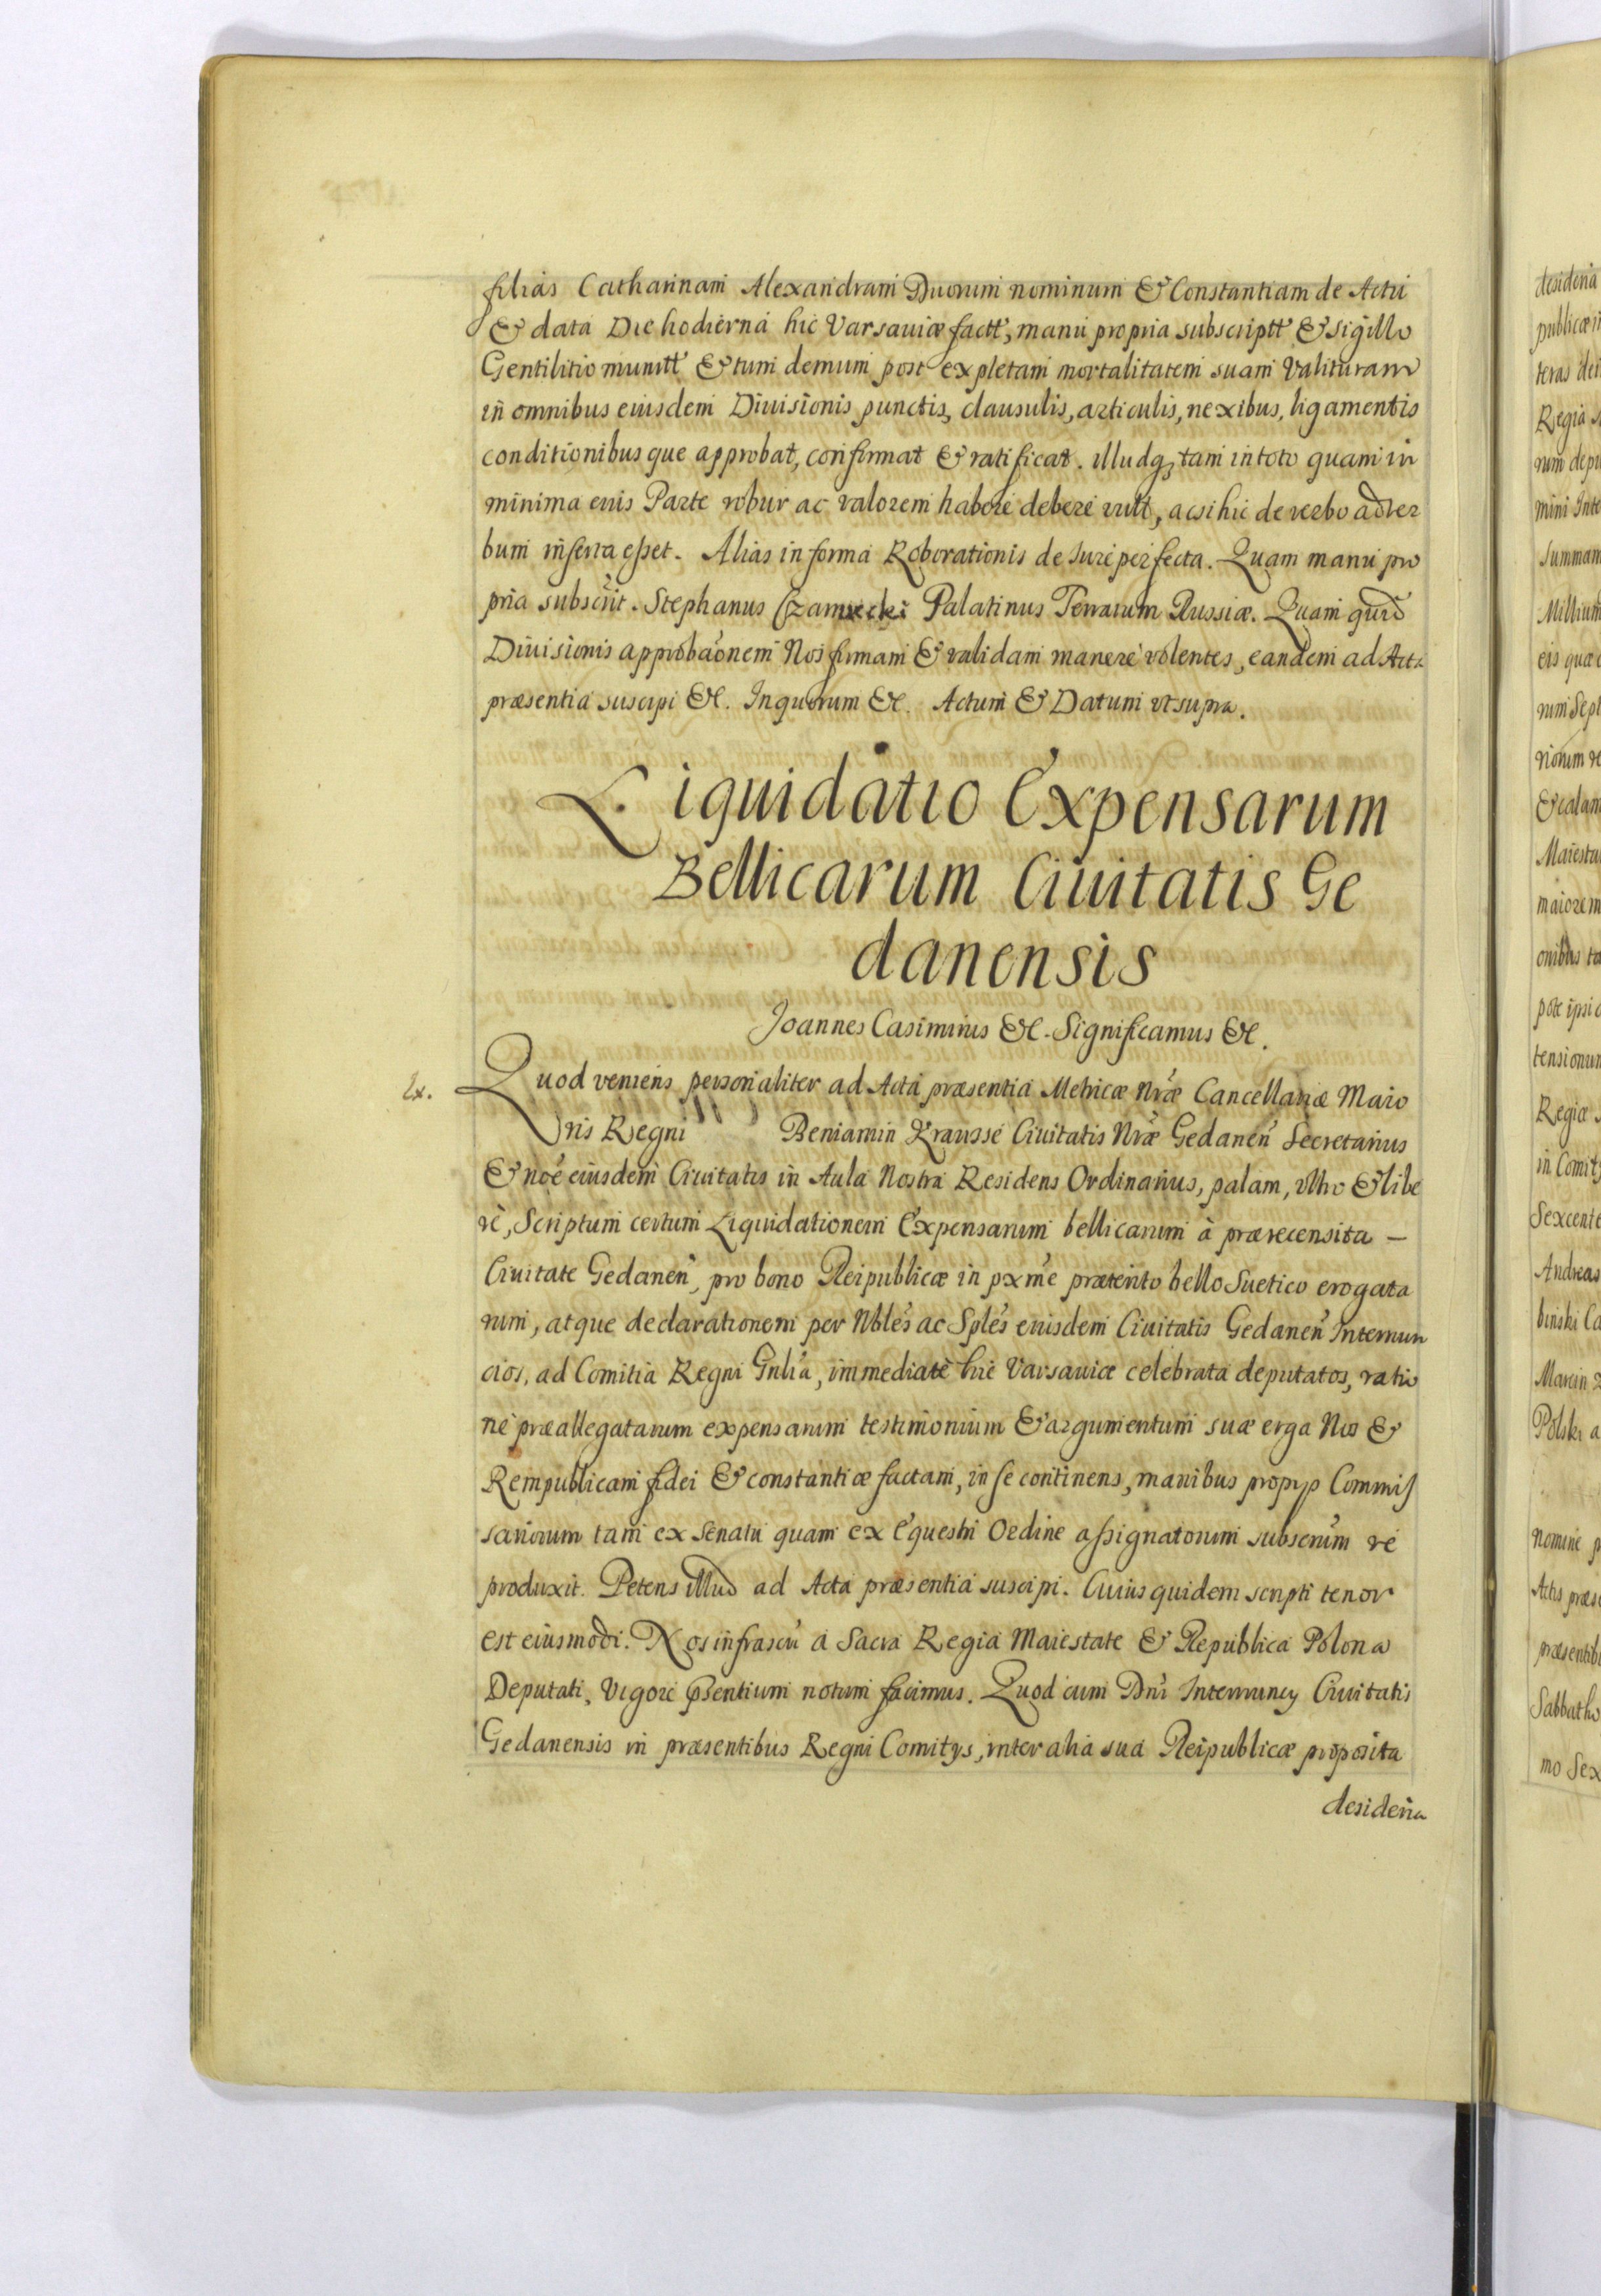 filias Catharinam Alexandram Duorum nominum & Constantiam de Actu
& data Die hodierna hic Varsauiæ factt, manu propria subscriptt & sigillo
Gentilitio munitt & tum demum post expletam mortalitatem suam valituram
in omnibus eiusdem Diuisionis punctis, clausulis, articulis, nexibus, ligamentis
conditionibus que approbat, confirmat & ratificat. illudq; tam in toto quam in
minima eius Parte robur ac valorem habere debere vult, acsi hic de verbo ad ver
bum inserta esset. Alias in forma Roborationis de Jure perfecta. Quam manu pro
pria subscrit. Stephanus Czarnecki Palatinus Terrarum Russiæ. Quam quid
Diuisionis approbaonem Nos firmam & validam manere volentes, eandem ad Acta
præsentia suscipi &c. In quorum &c. Actum & Datum vt supra.
Liquidatio Expensarum
Bellicarum Ciuitatis Ge
danensis
Joannes Casimirus &c. Significamus &c.
Ex.
Quod veniens personaliter ad Acta præsentia Metricæ Nræ Cancellariæ Maio
ris Regni Beniamin Krausse Ciuitatis Nræ Gedanen Secretarius
& noe eiusdem Ciuitatis in Aula Nostra Residens Ordinarius, palam, vltro & libe
rè, Scriptum certum Liquidationem Expensarum bellicarum à prærecensita —
Ciuitate Gedanen, pro bono Reipublicæ in pxme præterito bello Suetico erogata
rum, atque declarationem per Nbles ac Sples eiusdem Ciuitatis Gedanen Internun
cios, ad Comitia Regni Gnlia, immediatè hic Varsauiæ celebrata deputatos, ratio
ne præallegatarum expensarum testimonium & argumentum suæ erga Nos &
Rempublicam fidei & constantiæ factam, in se continens, manibus proprys Commis
sariorum tam ex Senatu quam ex Equestri Ordine assignatorum subscrum re
produxit. Petens illud ad Acta præsentia suscipi. Cuius quidem scripti tenor
est eiusmodi. Nos infrascri a Sacra Regia Maiestate & Republica Polona
Deputati, Vigore pñsentium notum facimus. Quod cum Dni Internuncy Ciuitatis
Gedanensis in præsentibus Regni Comitys, inter alia sua Reipublicæ proposita
desideria